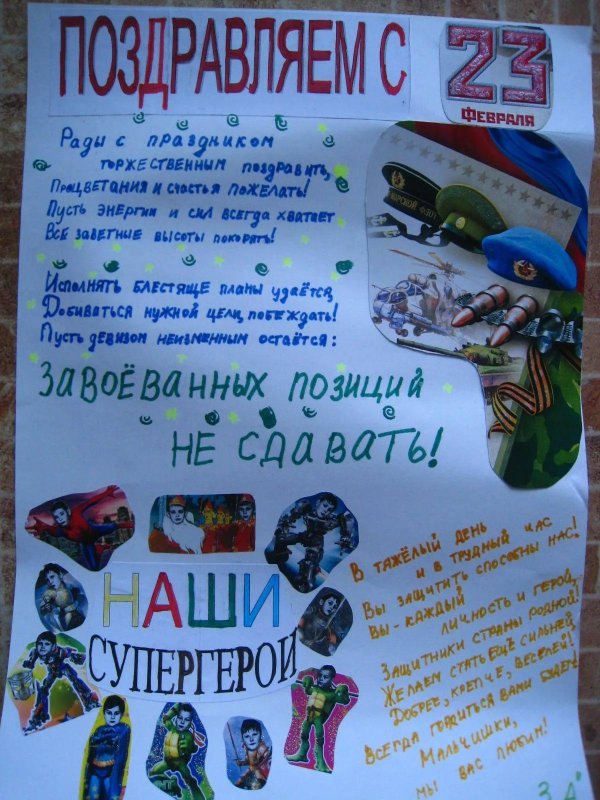 ПОЗДРАВЛЯЕМ С
23
ФЕВРАЛЯ
Рады с праздником
торжественным поздравить,
Процветания и счастья пожелать!
Пусть энергии и сил всегда хватает
Все заветные высоты покорять!
Исполнять блестяще планы удаётся,
Добиваться нужной цели, побеждать!
Пусть девизом неизменным остаётся:
ЗАВОЁВАННЫХ ПОЗИЦИЙ
НЕ СДАВАТЬ!
НАШИ
СУПЕРГЕРОИ
В тяжёлый день
и в трудный час
Вы защитить способны нас!
Вы - каждый
личность и герой,
Защитники страны родной!
Желаем стать ещё сильней,
Добрее, крепче, веселей!
Всегда гордиться вами будем!
Мальчишки,
мы вас любим!
3 "А"